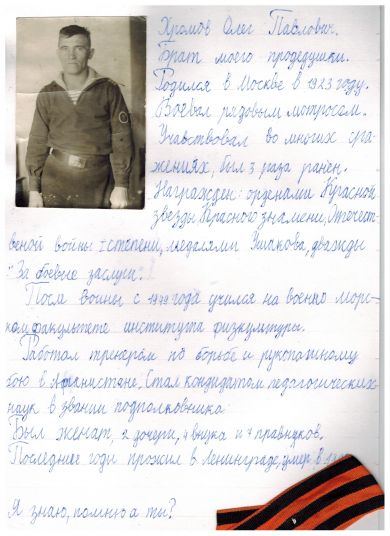 Хромов Олег Павлович.
Брат моего продедушки.
Родился в Москве в 1923 году.
Воевал рядовым матросом.
Учавствовал во многих сра-
жениях, был 3 раза ранен.
Награжден: орденами Красной
звезды, Красного знамени, Отечест-
веной войны I степени, медалями Ушакова, дважды
"За боевые заслуги".
Посла войны с 1949 года учился на военно морс-
ком факультете института физкультуры.
Работал тренером по борьбе и рукопашному
бою в Афганистане. Стал кандидатом педагогических
наук в звании подполковника.
Был женат, 2 дочери, 4 внука и 7 правнуков.
Последние годы прожил в Ленинграде, умер в
Я знаю, помню а ты?